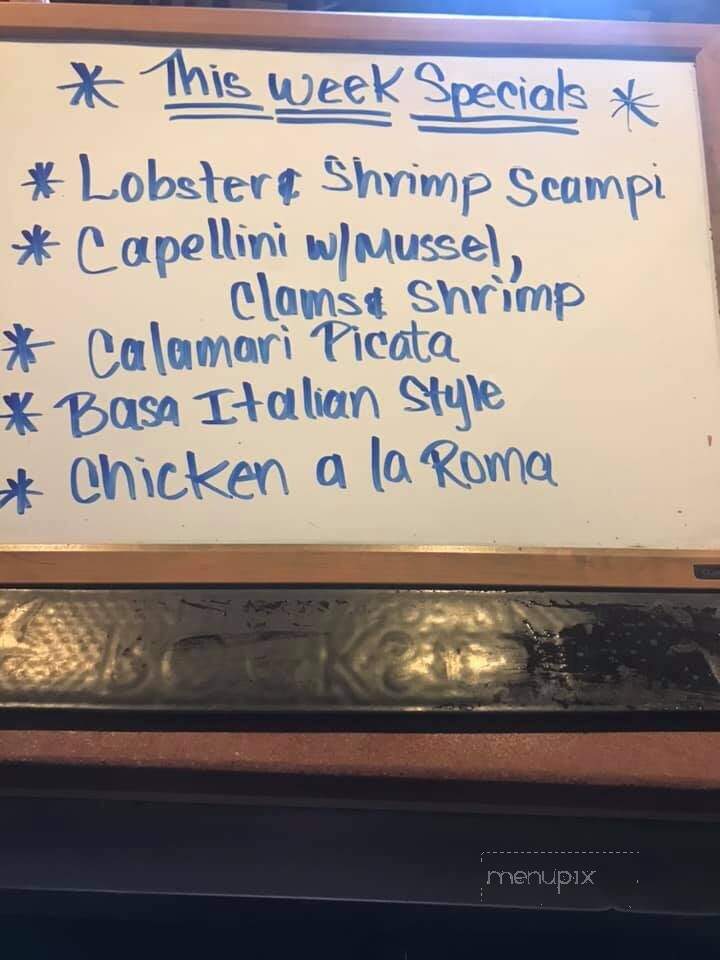 * This week Specials *
* Lobster & Shrimp Scampi
* Capellini w/Mussel,
Clams & Shrimp
* Calamari Picata
* Basa Italian Style
* Chicken a la Roma
menupix